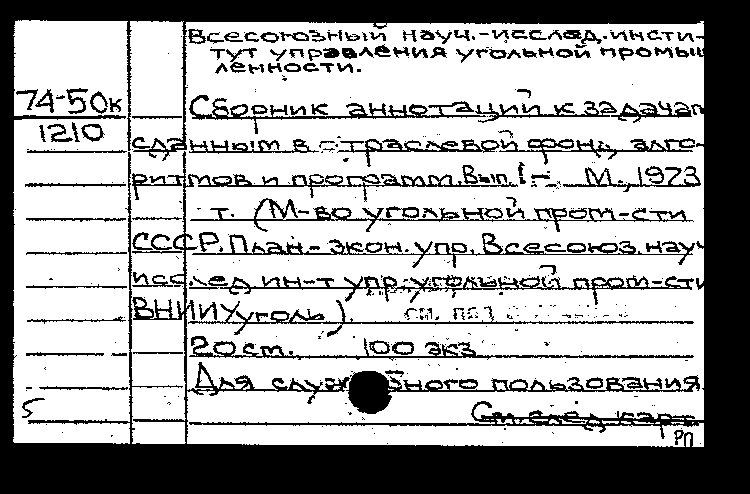 Всесоюзный науч.-исслед. инсти-
тут управления угольной промыш
ленности.
74-50к
1210
Сборник аннотаций к задачам
сданным в отраслевой фонд алго-
ритмов и программ. Вып. 1- М., 1973
т. (М-во угольной пром-сти
СССР. План.-экон. упр. Всесоюз. науч
исслед ин-т упр. угольной пром-сти
ВНИИуголь).
см. под
20 см. 100 экз
Для служебного пользования
5
См. след карт
РП